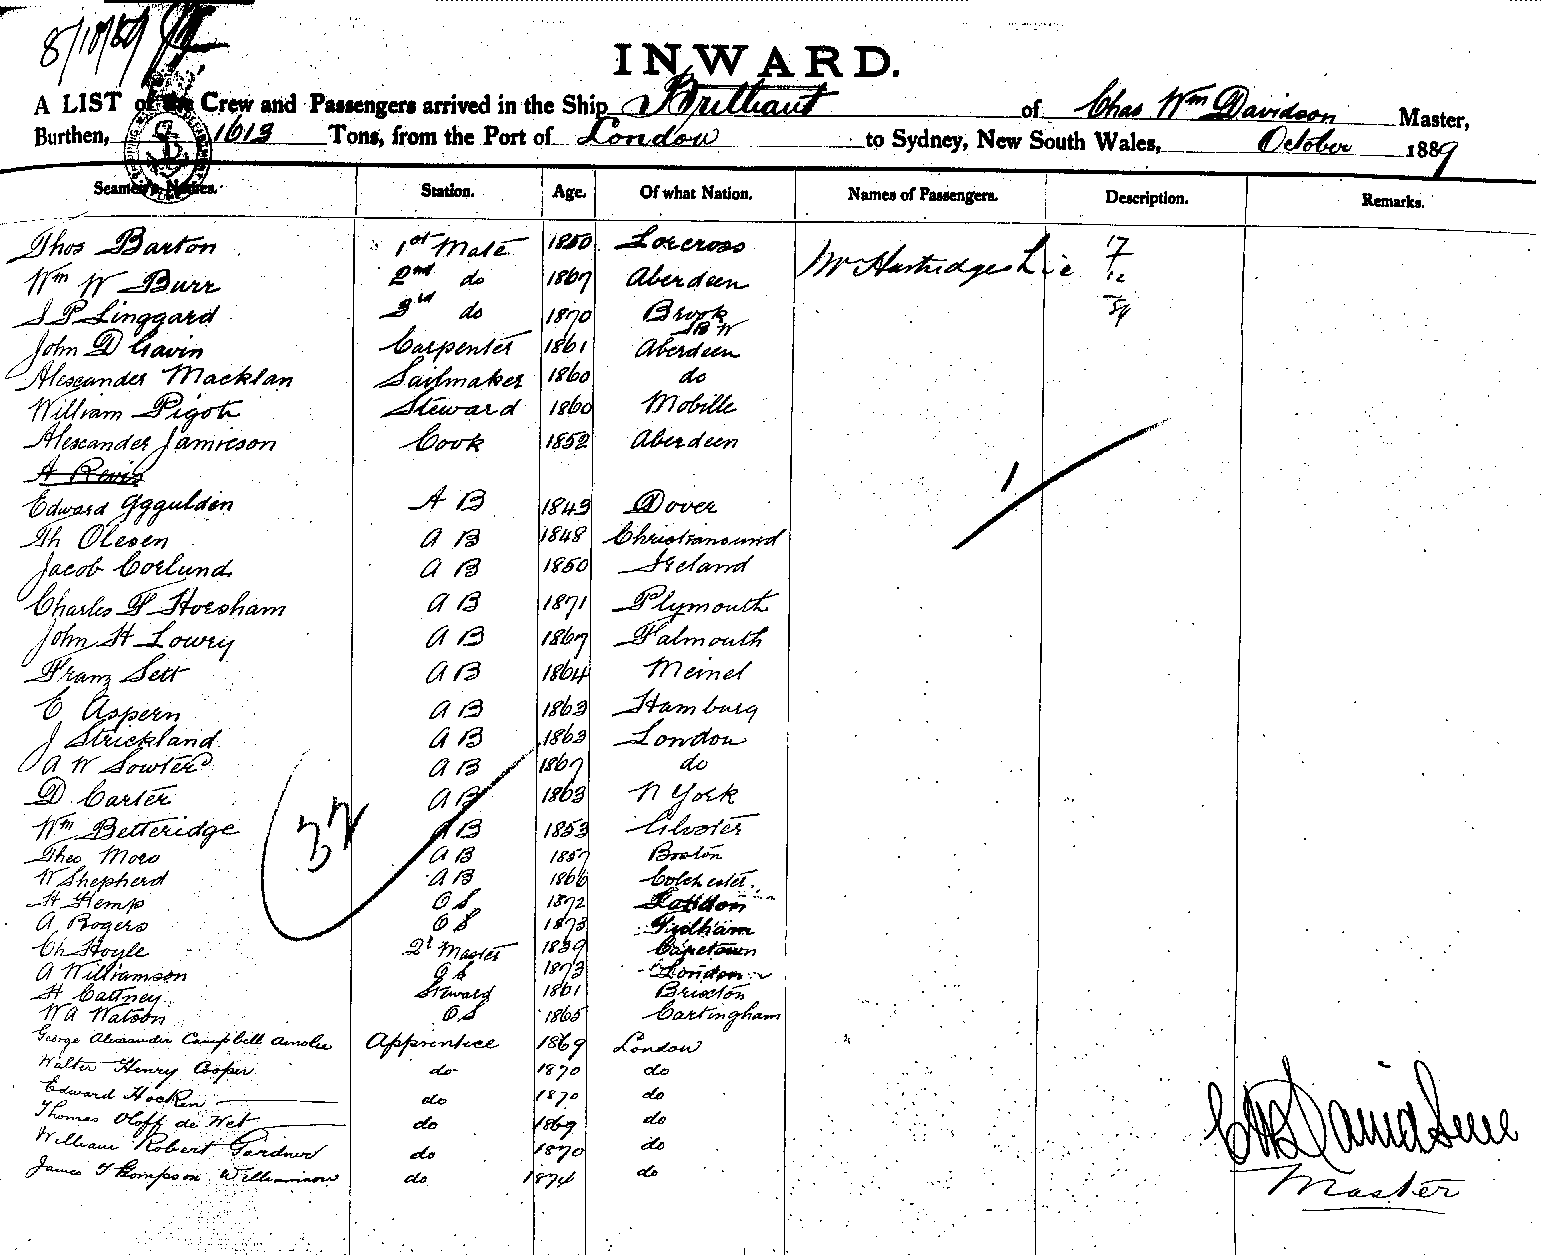 8/10/89
INWARD.
A LIST of the Crew and Passengers arrived in the Ship Brilliant of Chas Wm Davidson Master,
Burthen, 1613 Tons, from the Port of London to Sydney, New South Wales, October 1889
Seamen's Names. Station. Age. Of what Nation. Names of Passengers. Description. Remarks.
Thos Barton 1st Mate 1850 Lorcross
Wm W Burr 2nd do 1867 Aberdeen Mr 17/12/89
J P Linggard 3rd do 1870 Brook
John D Gavin Carpenter 1861 Aberdeen
Alexander Macklan Sailmaker 1860 do
William Pigott Steward 1860 Mobille
Alexander Jamieson Cook 1852 Aberdeen
A Revis
Edward Iggulden A B 1843 Dover
Th Olesen A B 1848 Christiansund
Jacob Coelund A B 1850 Ireland
Charles F Horsham A B 1871 Plymouth
John H Lowry A B 1867 Falmouth
Franz Sett A B 1864 Meinel
E Aspern A B 1863 Hamburg
J Strickland A B 1863 London
A W Sowter A B 1867 do
D Carter A B 1863 N York
Wm Betteridge A B 1853
Theo Moro A B 1857 Boston
W Shepherd A B 1866 Colchester
H Kemp O S 1872 London
A Rogers O S 1873 Fulham
Ch Hoyle 2d Master 1839 Capetown
A Williamson O S 1873 London
H Cattney Steward 1861 Brixton
W A Watson O S 1865 Cartingham
George Alexander Campbell Apprentice 1869 London
Walter Henry Cooper do 1870 do
Edward Hocken do 1870 do
Thomas Oloff de Wet do 1869 do
William Robert Gardner do 1870 do
James Thompson Williamson do 1874 do
1
32
C W Davidson
Master